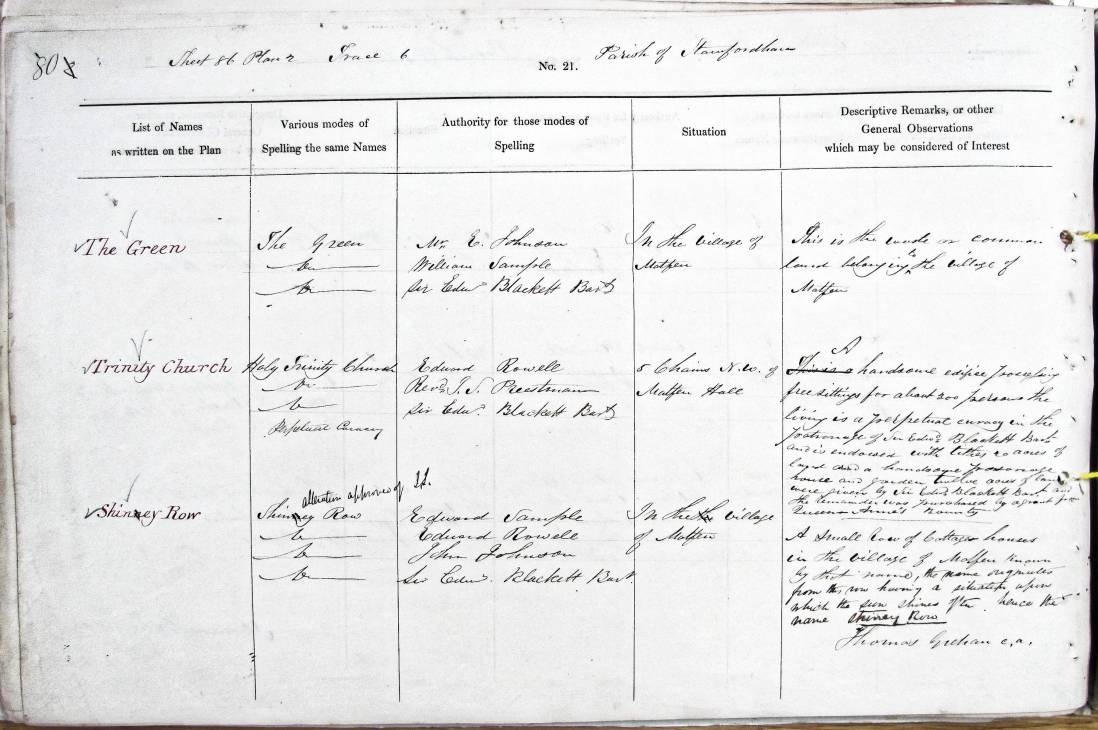 808
Sheet 86 Plan 2 Trace 6
No. 21.
Parish of Stamfordham
List of Names
as written on the Plan
Various modes of
Spelling the same Names
Authority for those modes of
Spelling
Situation
Descriptive Remarks, or other
General Observations
which may be considered of Interest
The Green
The Green
Do
Do
Mr. E. Johnson
William Sample
Sir Edwd Blackett Bart
In the Village of
Matfen
This is the waste or common
land belonging to the village of
Matfen
Trinity Church
Holy Trinity Church
Do
Do
Perpetual Curacy
Edward Rowell
Revd. J. S. Preestman
Sir Edwd. Blackett Bart
5 Chains N.W. of
Matfen Hall
A
This is a handsome edifice possessing
free sittings for about 200 persons the
living is a perpetual curacy in the
patronage of Sir Edwd Blackett Bart
and is endowed with tithes 20 acres of
land and a handsome parsonage
house and garden twelve acres of land
were given by Sir Edwd Blackett Bart and
the remainder was purchased by a grant from
Queen Anne's bounty
Shinney Row
alteration approved of
Shinney Row
Do
Do
Do
Edward Sample
Edward Rowell
John Johnson
Sir Edwd. Blackett Bart.
In the the Village
of Matfen
A small Row of Cottage houses
in the village of Matfen known
by that name, the name originates
from the row having a situation upon
which the sun shines often hence the
name Shiney Row
Thomas Grehan c.a.